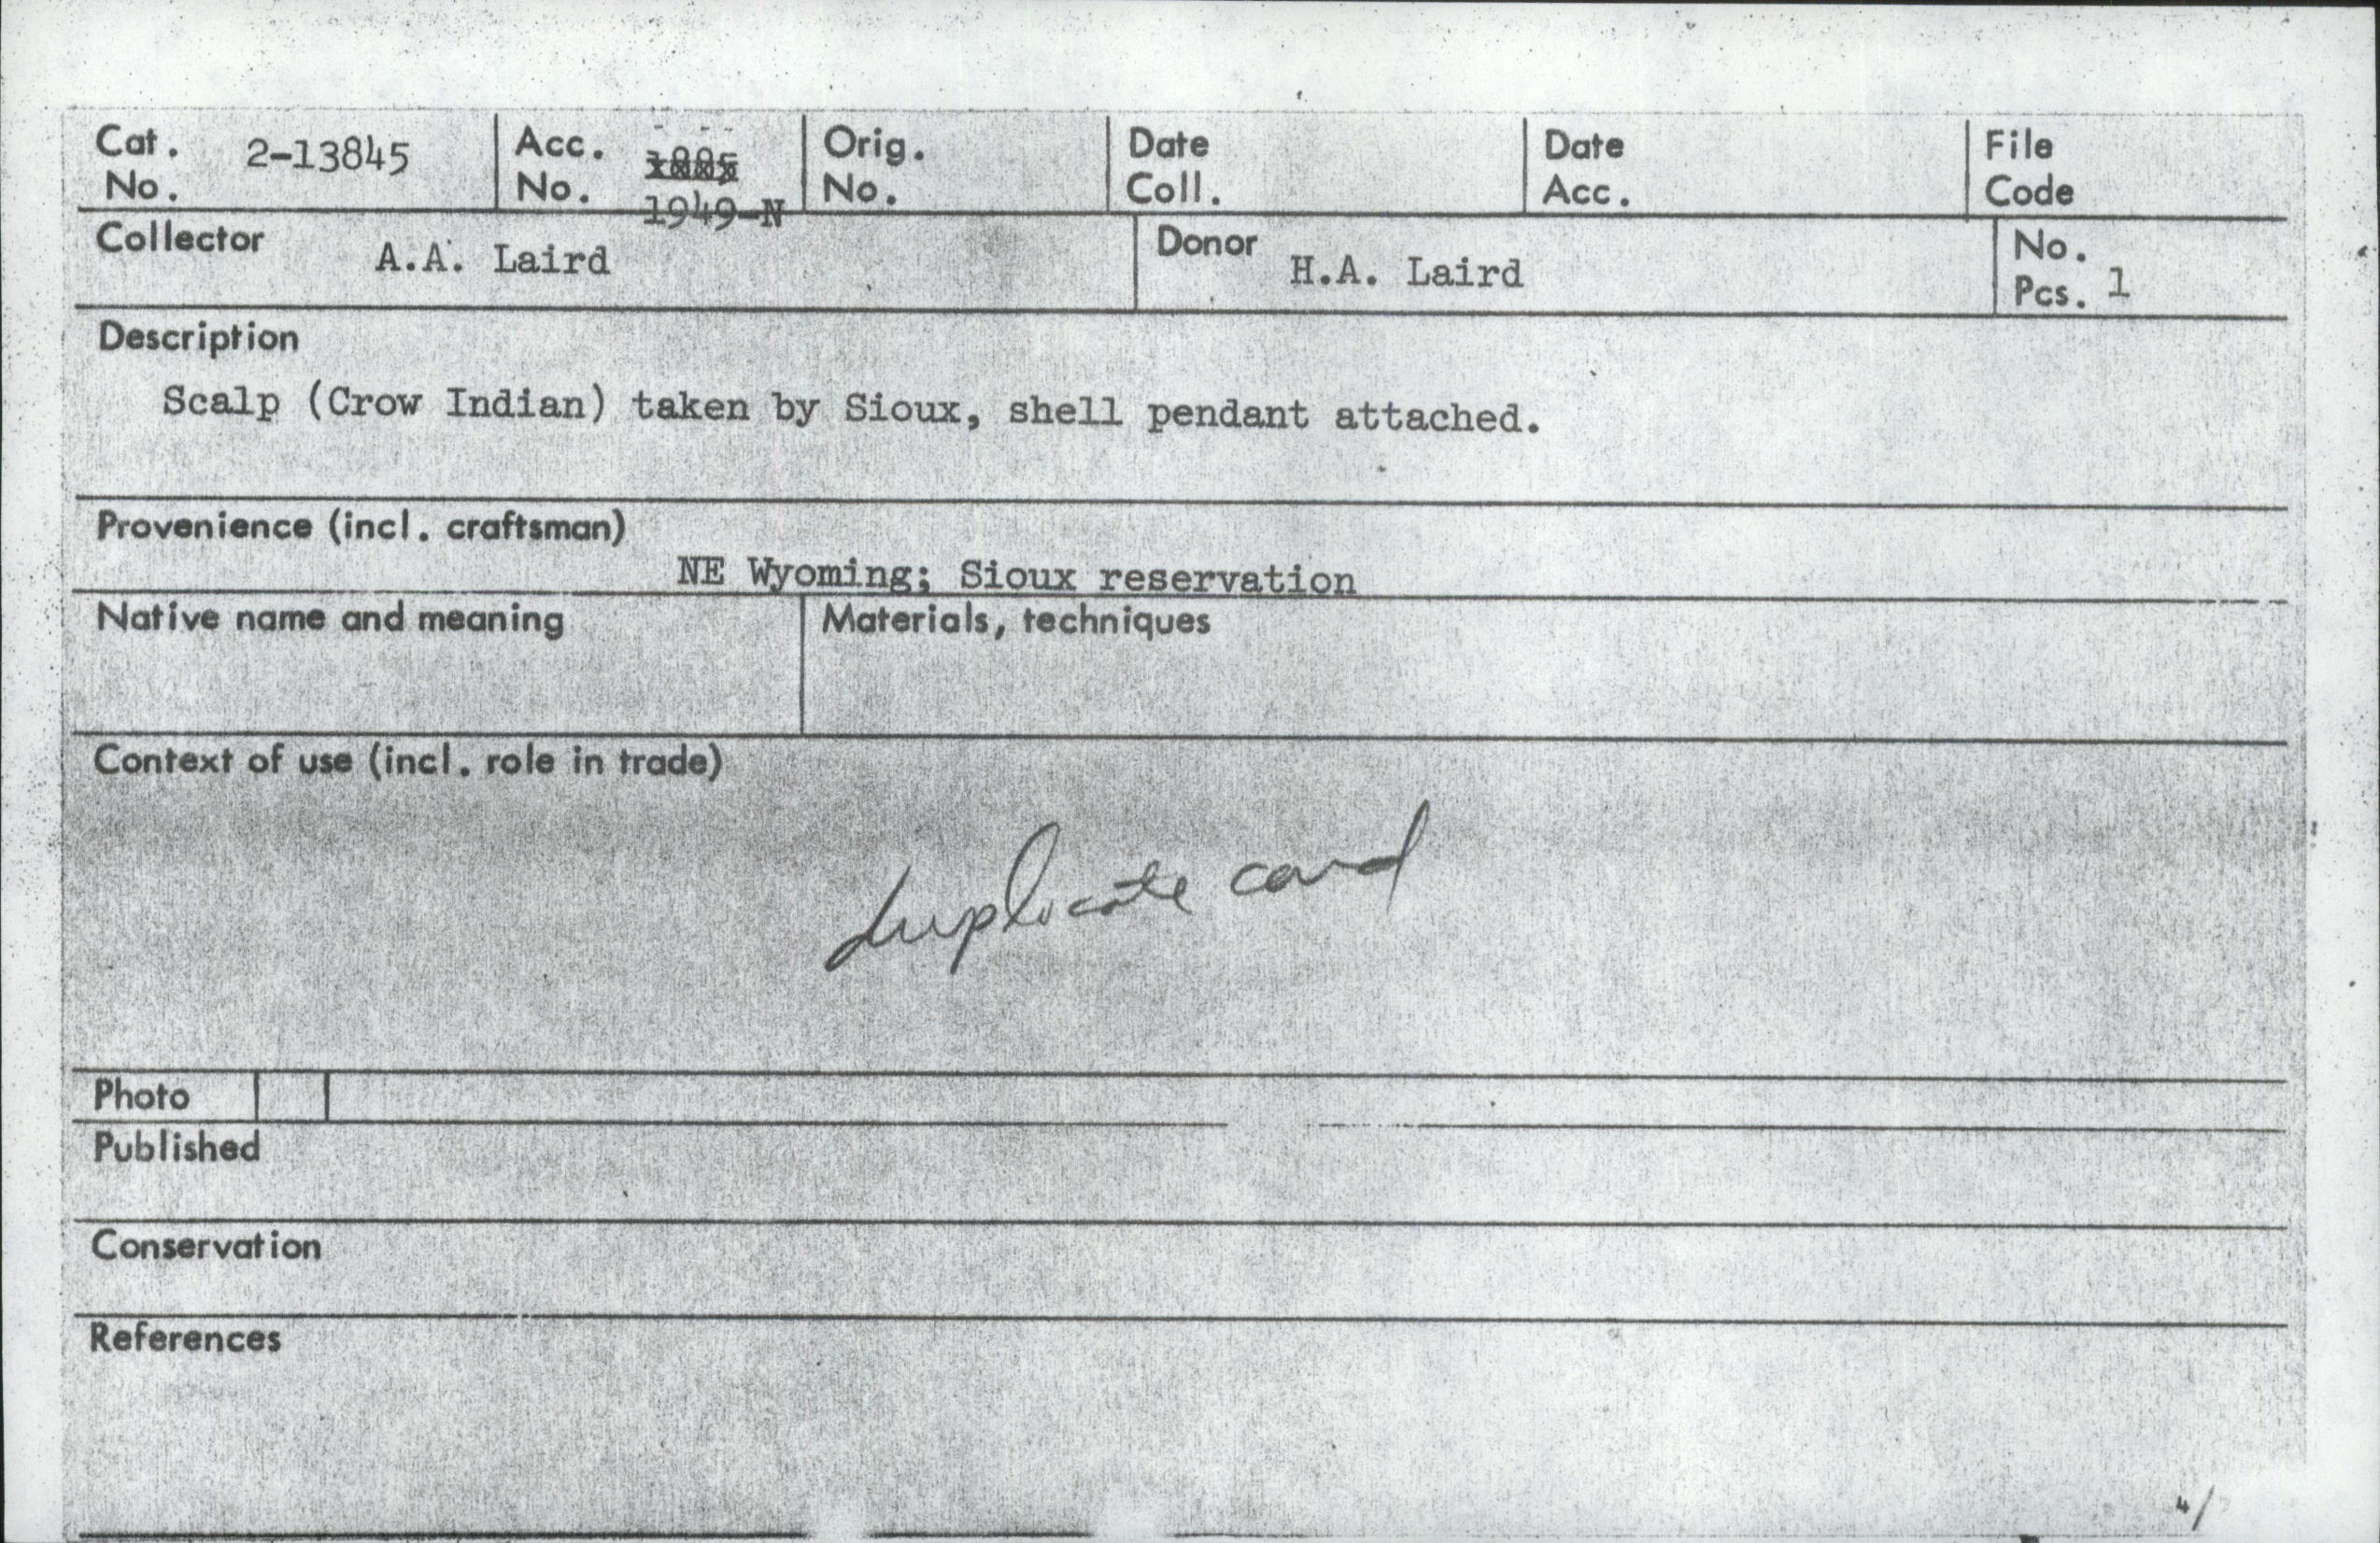 Cat. No. 2-13845 Acc. No. 1949-N Orig. No. Date Coll. Date Acc. File Code
Collector A.A. Laird Donor H.A. Laird No. Pcs. 1
Description
Scalp (Crow Indian) taken by Sioux, shell pendant attached.
Provenience (incl. craftsman)
NE Wyoming; Sioux reservation
Native name and meaning Materials, techniques
Context of use (incl. role in trade)
duplicate card
Photo
Published
Conservation
References